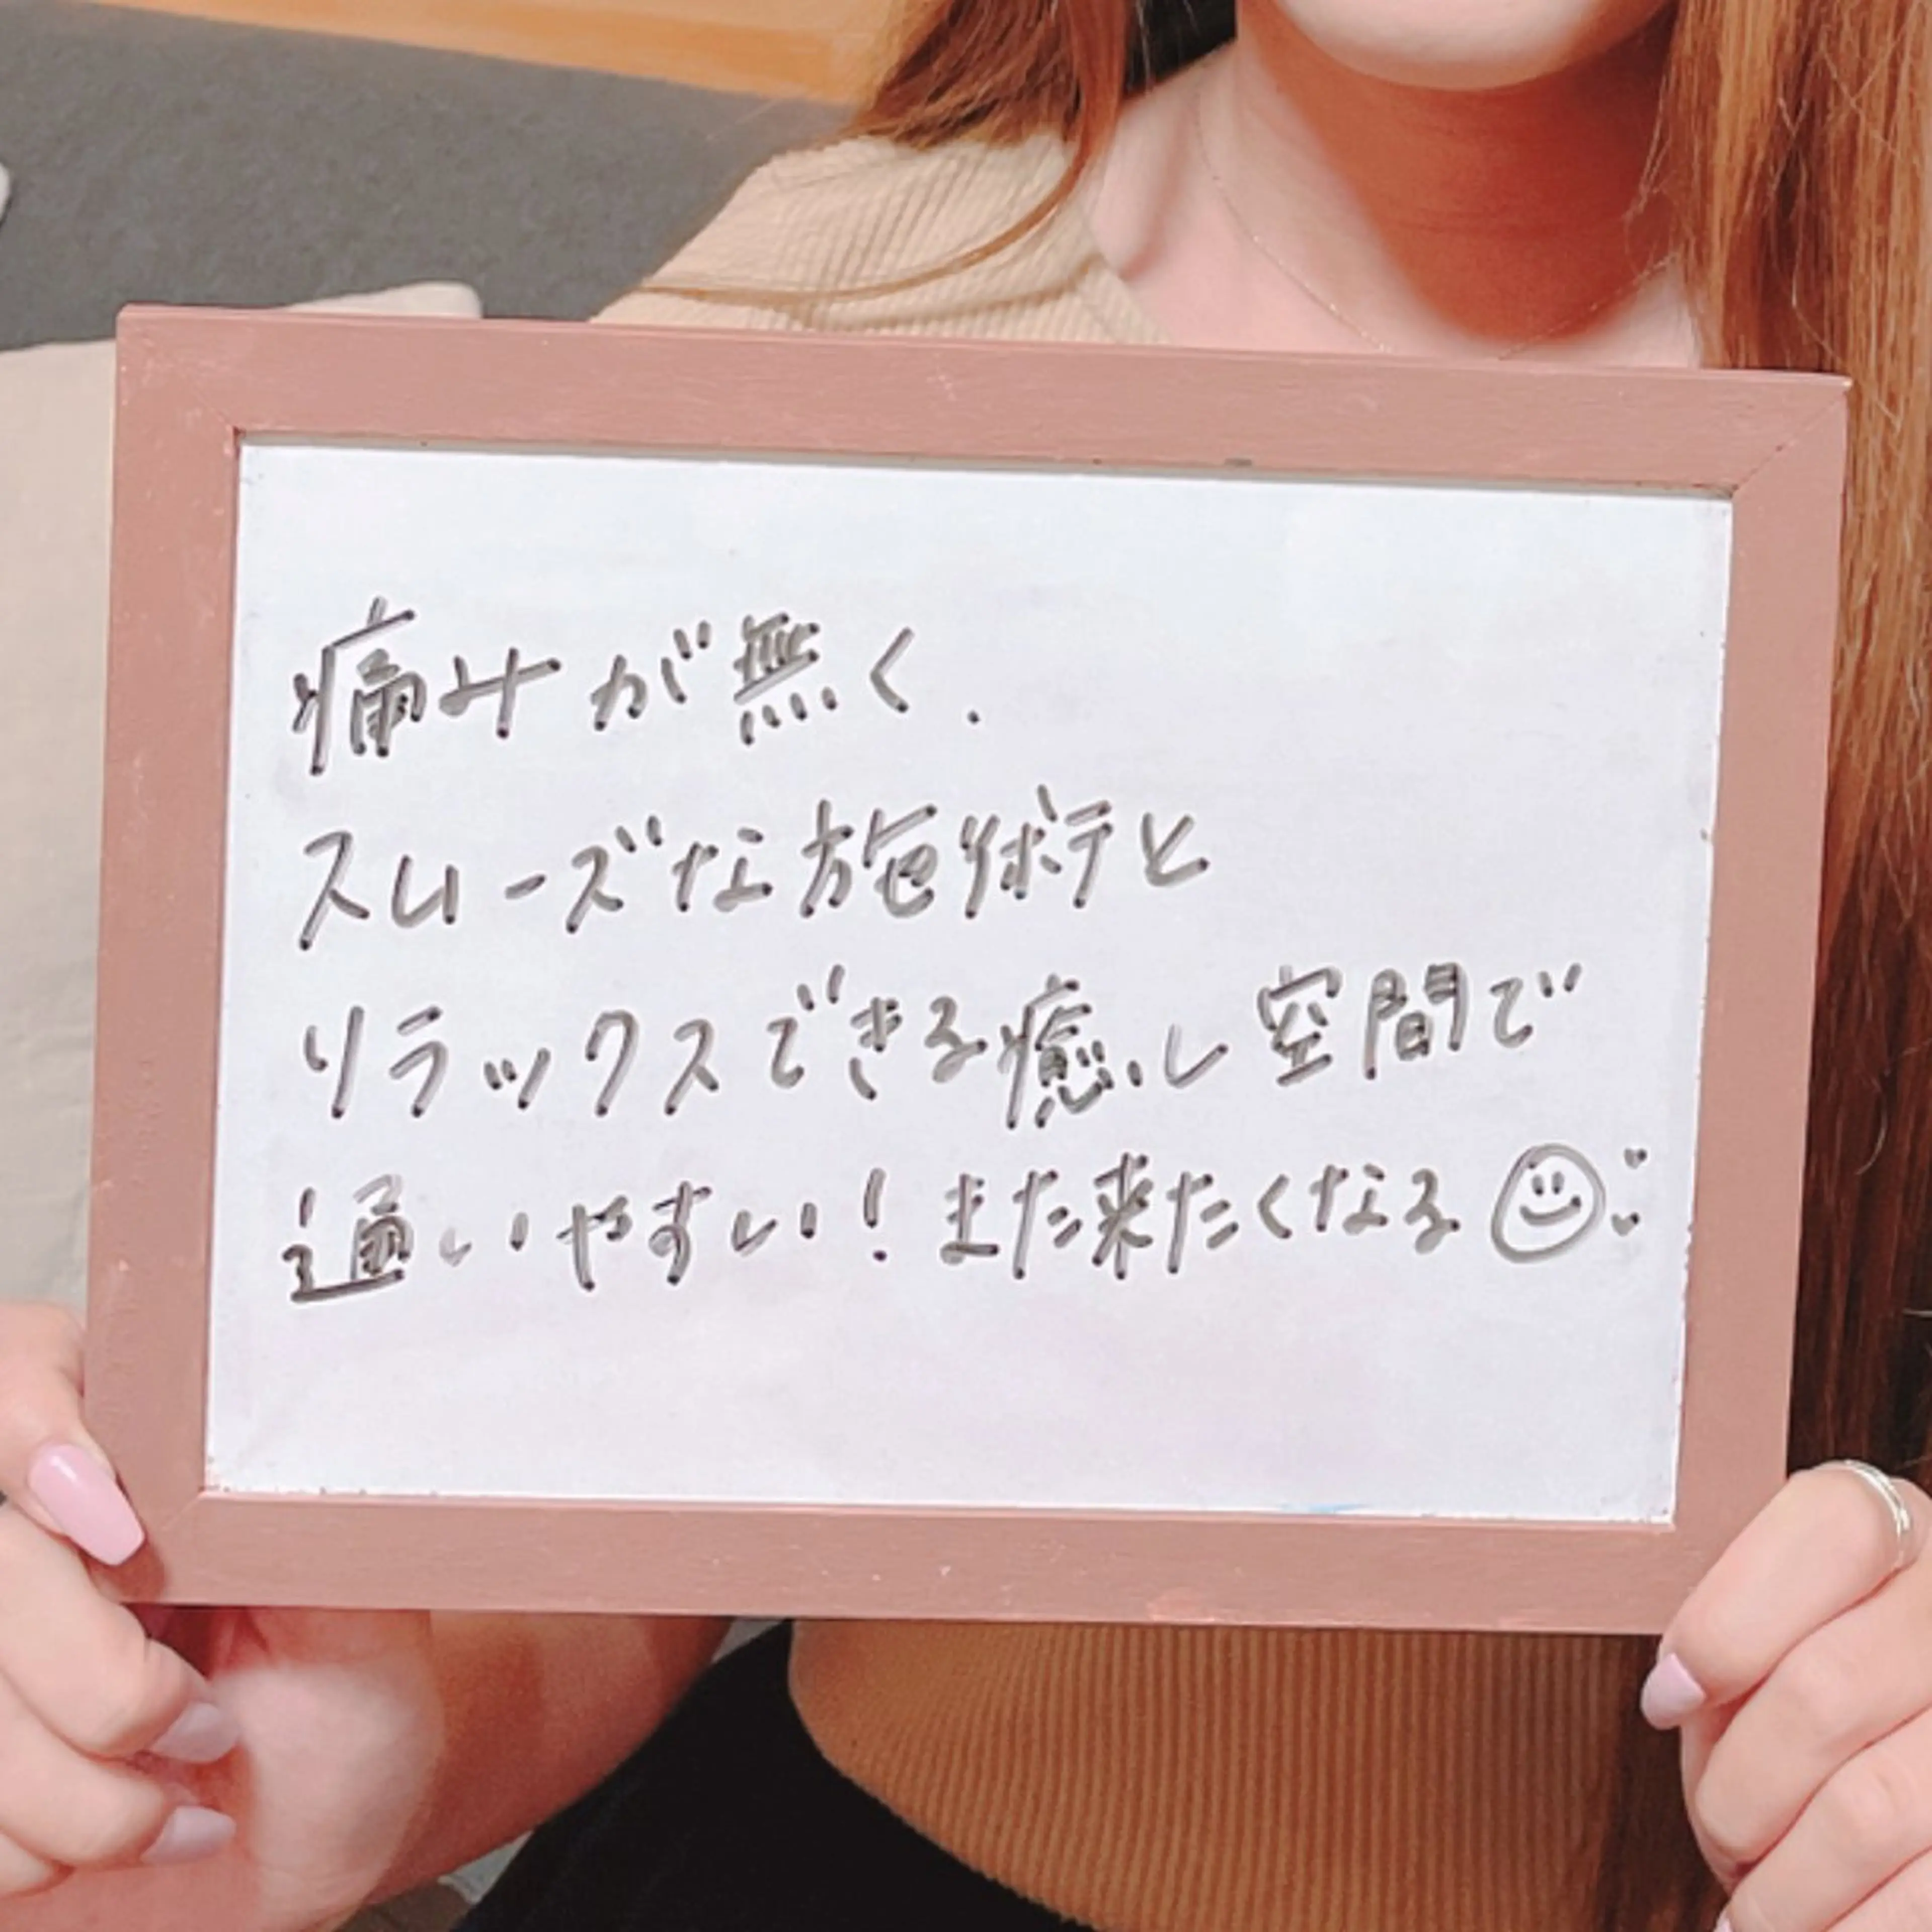 痛みが無く、
スムーズな施術と
リラックスできる癒し空間で
通いやすい！また来たくなる